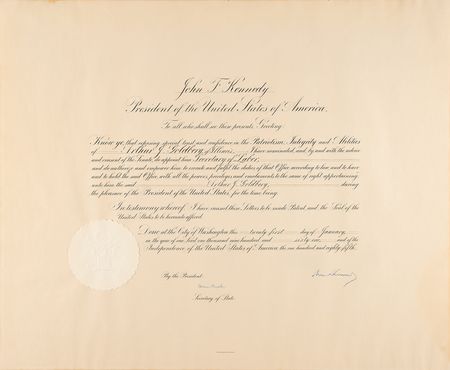 John F. Kennedy
President of the United States of America.
To all who shall see these presents, Greeting:
Know ye, that reposing special trust and confidence in the Patriotism, Integrity and Abilities
of Arthur J. Goldberg, of Illinois, I have nominated, and, by and with the advice
and consent of the Senate, do appoint him Secretary of Labor,
and do authorize and empower him to execute and fulfil the duties of that Office according to law, and to have
and to hold the said Office, with all the powers, privileges and emoluments to the same of right appertaining,
unto him the said Arthur J. Goldberg, during
the pleasure of the President of the United States, for the time being.
In testimony whereof, I have caused these Letters to be made Patent, and the Seal of the
United States to be hereunto affixed.
Done at the City of Washington this twenty-first day of January,
in the year of our Lord one thousand nine hundred and sixty-one, and of the
Independence of the United States of America the one hundred and eighty-fifth.
By the President:
Secretary of State.